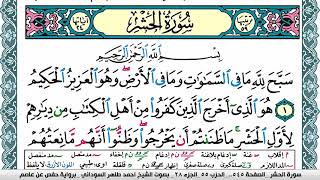 سُورَةُ الْحَشْرِ
بِسْمِ اللَّهِ الرَّحْمَٰنِ الرَّحِيمِ
سَبَّحَ لِلَّهِ مَا فِي السَّمَاوَاتِ وَمَا فِي الْأَرْضِ ۖ وَهُوَ الْعَزِيزُ الْحَكِيمُ
١ هُوَ الَّذِي أَخْرَجَ الَّذِينَ كَفَرُوا مِنْ أَهْلِ الْكِتَابِ مِنْ دِيَارِهِمْ
لِأَوَّلِ الْحَشْرِ ۚ مَا ظَنَنْتُمْ أَنْ يَخْرُجُوا ۖ وَظَنُّوا أَنَّهُمْ مَانِعَتُهُمْ
سورة الحشر الصفحة ٥٤٥ـ الجزء ٢٨ بصوت الشيخ أحمد طاهر السوداني برواية حفص عن عاصم